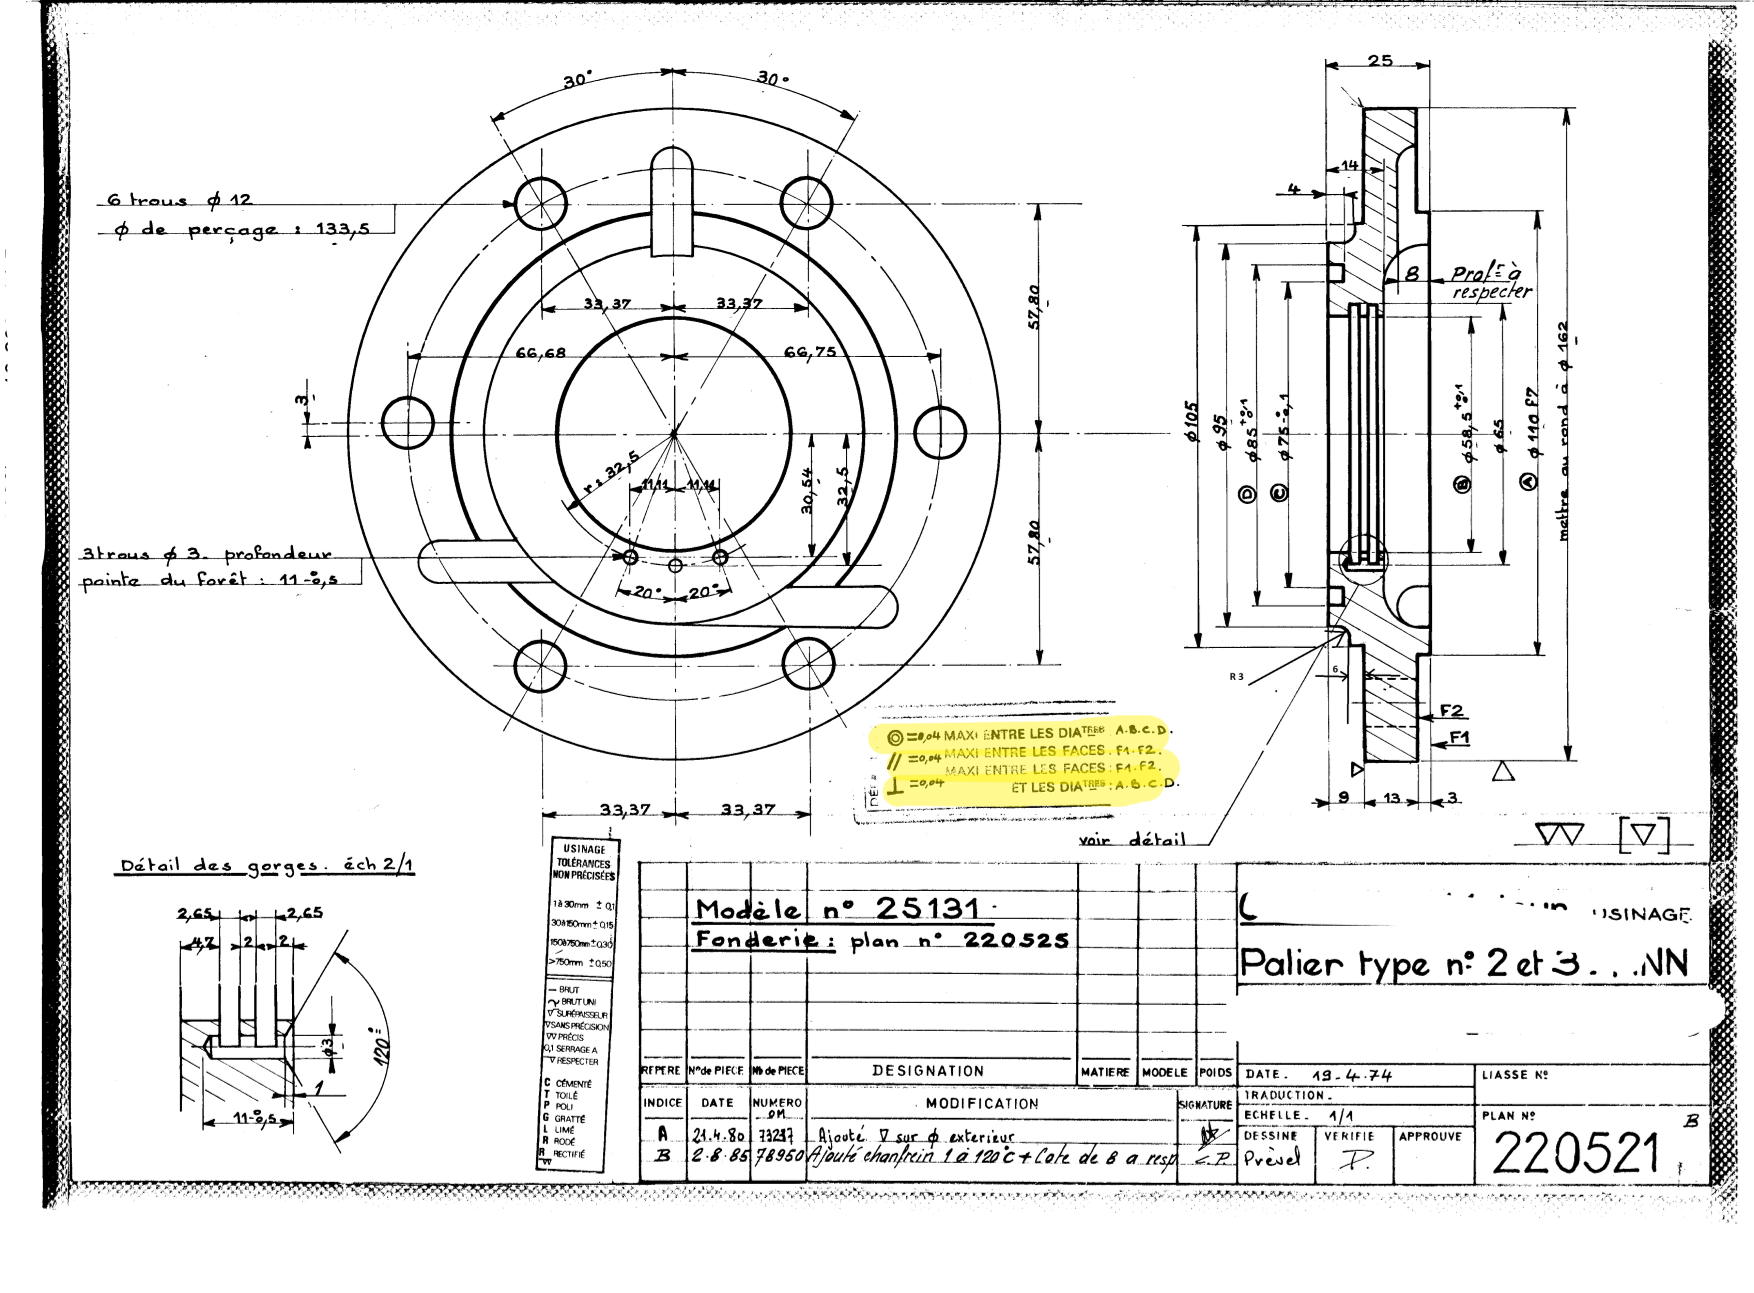 30° 30°
6 trous ϕ 12
ϕ de perçage : 133,5
33,37 33,37
66,68 66,75
3
57,80
57,80
r : 32,5
11,11 11,11
30,54
32,5
3 trous ϕ 3. profondeur
pointe du forêt : 11 -0/0,5
20° 20°
33,37 33,37
25
14
4
8 Prof.r à
respecter
ϕ105
ϕ95
D ϕ85 +0,1/0
C ϕ75 -0/0,1
B ϕ58,5 +0,1/0
ϕ65
A ϕ110 F7
mettre au rond à ϕ 162
R 3
6
F2
F1
9 13 3
voir détail
◎ =0,04 MAXI ENTRE LES DIATRES A.B.C.D.
// =0,04 MAXI ENTRE LES FACES. F1.F2.
⊥ =0,04 MAXI ENTRE LES FACES : F1.F2.
ET LES DIATRES : A.B.C.D.
Détail des gorges. éch 2/1
2,65 2,65
4,7 2 2
ϕ3
120°
1
11 -0/0,5
USINAGE
TOLÉRANCES
NON PRÉCISÉES
1 à 30mm ± 0,1
30à150mm ± 0,15
150à750mm ± 0,30
>750mm ± 0,50
— BRUT
~ BRUT UNI
▽ SURÉPAISSEUR
▽ SANS PRÉCISION
▽▽ PRÉCIS
0,1 SERRAGE A
▽ RESPECTER
C CÉMENTÉ
T TOILÉ
P POLI
G GRATTÉ
L LIMÉ
R RODÉ
R RECTIFIÉ
Modèle n° 25131
Fonderie : plan n° 220525
REPERE N° de PIECE Nb de PIECE DESIGNATION MATIERE MODELE POIDS
INDICE DATE NUMERO OM MODIFICATION SIGNATURE
A 21.4.80 73297 Ajouté ▽ sur ϕ exterieur
B 2.8.85 78950 Ajouté chanfrein 1 à 120°C + Cote de 8 a resp C.P.
USINAGE
Palier type n° 2 et 3 . . . NN
DATE. 19.4.74
TRADUCTION.
ECHELLE. 1/1
DESSINE VERIFIE APPROUVE
Prével
LIASSE N°
PLAN N° B
220521